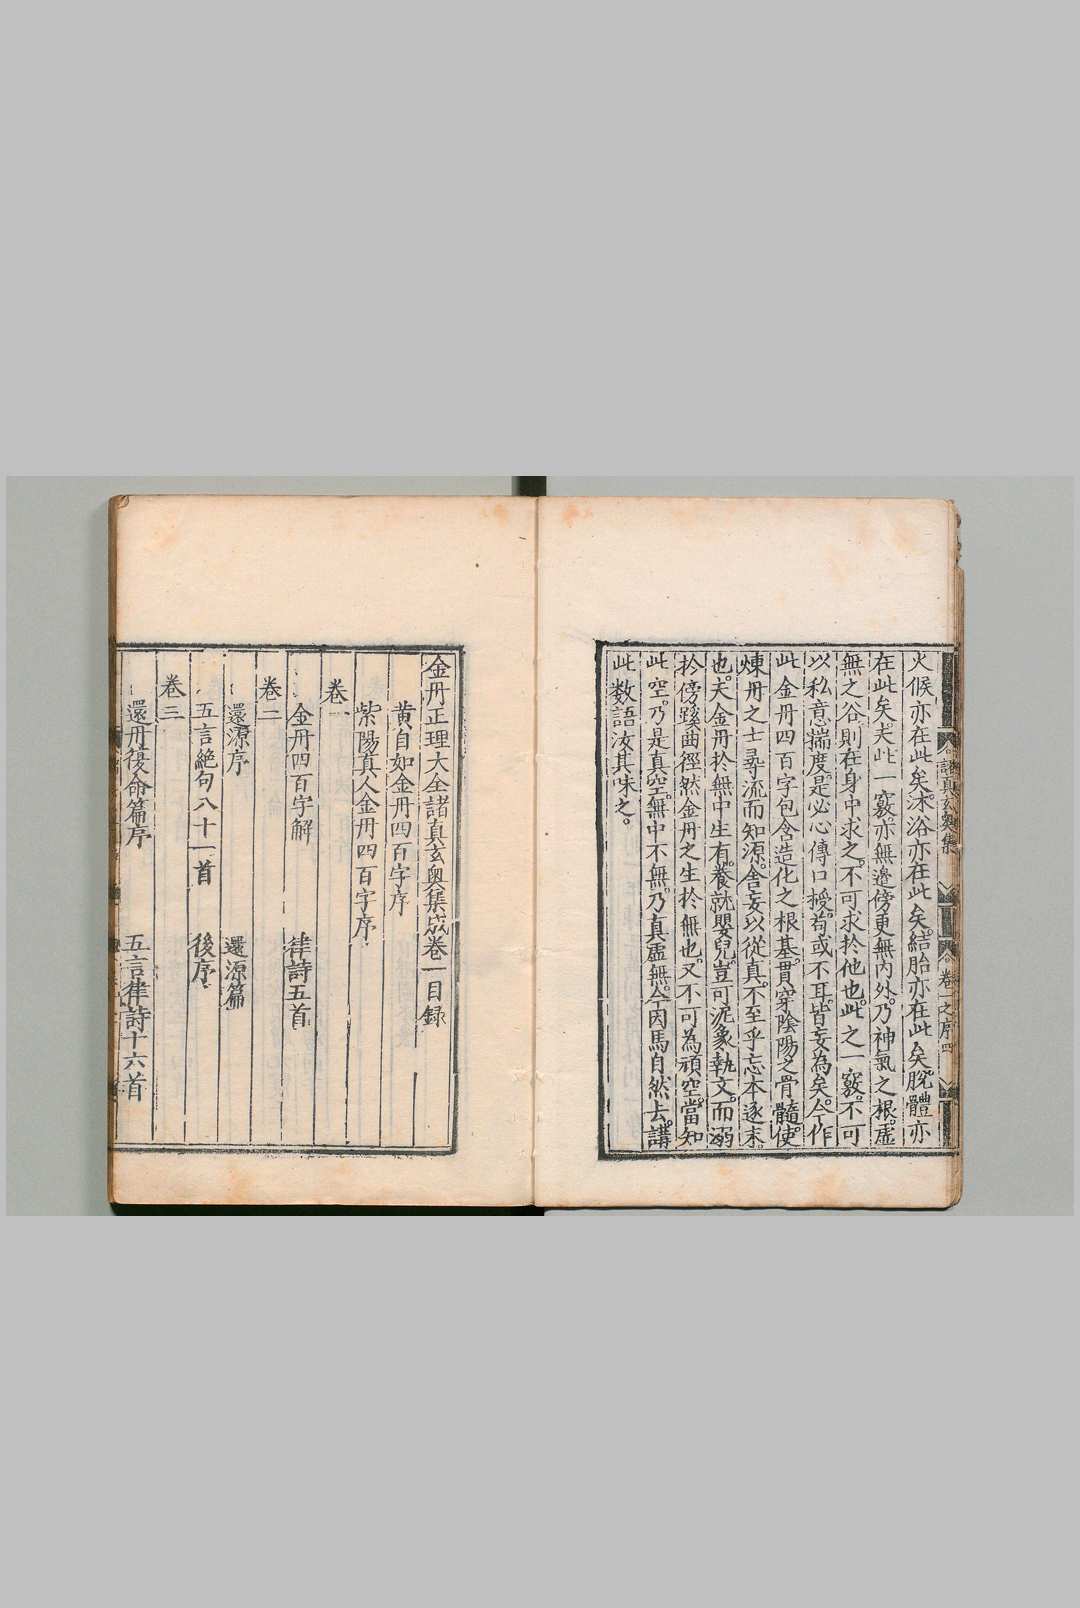 火候亦在此矣。沐浴亦在此矣。結胎亦在此矣。脫體亦
在此矣。夫此一竅亦無邊傍更無內外。乃神氣之根。虛
無之谷。則在身中求之。不可求於他也。此之一竅。不可
以私意揣度。是必心傳口授。苟或不耳。皆妄為矣。今作
此金丹四百字包含造化之根基。貫穿陰陽之骨髓。使
煉丹之士尋流而知源。舍妄以從真。不至乎忘本逐末
也。夫金丹於無中生有。養就嬰兒。豈可泥象執文。而溺
於傍蹊曲徑然金丹之生於無也。又不可為頑空。當知
此空。乃是真空。無中不無。乃真虛無。今因馬自然去。講
此數語汝其味之。
諸真玄奧集
卷一之序
四
金丹正理大全諸真玄奧集成卷一目錄
黃自如金丹四百字序
紫陽真人金丹四百字序
卷一
金丹四百字解 律詩五首
卷二
還源序 還源篇
五言絕句八十一首 後序
卷三
還丹復命篇序 五言律詩十六首